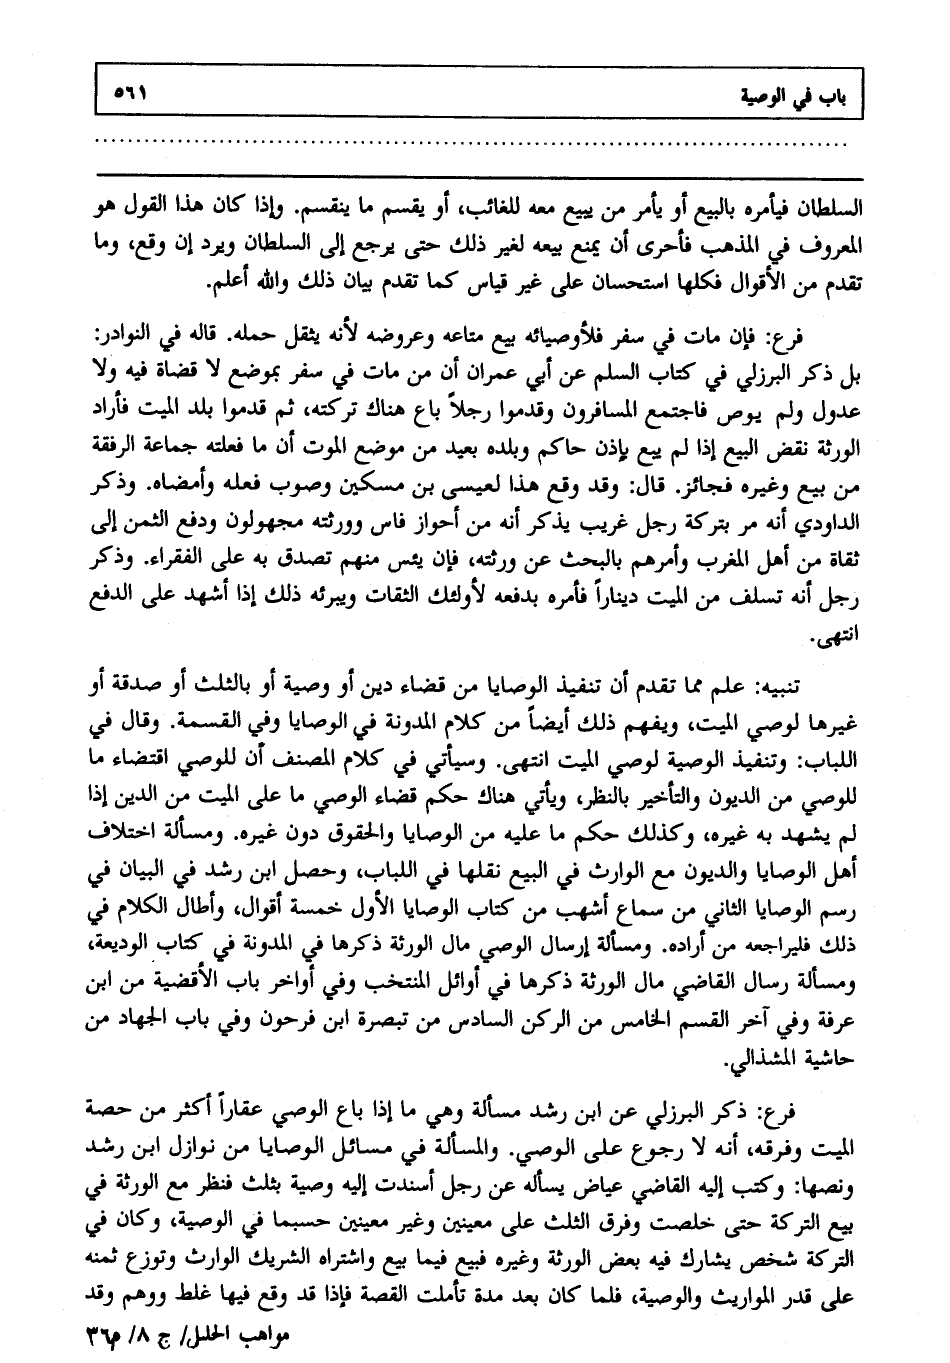 باب في الوصية ٥٦١
السلطان فيأمره بالبيع أو يأمر من يبيع معه للغائب، أو يقسم ما ينقسم. وإذا كان هذا القول هو
المعروف في المذهب فأحرى أن يمنع بيعه لغير ذلك حتى يرجع إلى السلطان ويرد إن وقع، وما
تقدم من الأقوال فكلها استحسان على غير قياس كما تقدم بيان ذلك والله أعلم.
فرع: فإن مات في سفر فلأوصيائه بيع متاعه وعروضه لأنه يثقل حمله. قاله في النوادر:
بل ذكر البرزلي في كتاب السلم عن أبي عمران أن من مات في سفر بموضع لا قضاة فيه ولا
عدول ولم يوص فاجتمع المسافرون وقدموا رجلاً باع هناك تركته، ثم قدموا بلد الميت فأراد
الورثة نقض البيع إذا لم يبع بإذن حاكم وبلده بعيد من موضع الموت أن ما فعلته جماعة الرفقة
من بيع وغيره فجائز. قال: وقد وقع هذا لعيسى بن مسكين وصوب فعله وأمضاه. وذكر
الداودي أنه مر بتركة رجل غريب يذكر أنه من أحواز فاس وورثته مجهولون ودفع الثمن إلى
ثقاة من أهل المغرب وأمرهم بالبحث عن ورثته، فإن يئس منهم تصدق به على الفقراء. وذكر
رجل أنه تسلف من الميت ديناراً فأمره بدفعه لأولئك الثقات ويبرئه ذلك إذا أشهد على الدفع
انتهى.
تنبيه: علم مما تقدم أن تنفيذ الوصايا من قضاء دين أو وصية أو بالثلث أو صدقة أو
غيرها لوصي الميت، ويفهم ذلك أيضاً من كلام المدونة في الوصايا وفي القسمة. وقال في
اللباب: وتنفيذ الوصية لوصي الميت انتهى. وسيأتي في كلام المصنف أن للوصي اقتضاء ما
للوصي من الديون والتأخير بالنظر، ويأتي هناك حكم قضاء الوصي ما على الميت من الدين إذا
لم يشهد به غيره، وكذلك حكم ما عليه من الوصايا والحقوق دون غيره. ومسألة اختلاف
أهل الوصايا والديون مع الوارث في البيع نقلها في اللباب، وحصل ابن رشد في البيان في
رسم الوصايا الثاني من سماع أشهب من كتاب الوصايا الأول خمسة أقوال، وأطال الكلام في
ذلك فليراجعه من أراده. ومسألة إرسال الوصي مال الورثة ذكرها في المدونة في كتاب الوديعة،
ومسألة رسال القاضي مال الورثة ذكرها في أوائل المنتخب وفي أواخر باب الأقضية من ابن
عرفة وفي آخر القسم الخامس من الركن السادس من تبصرة ابن فرحون وفي باب الجهاد من
حاشية المشذالي.
فرع: ذكر البرزلي عن ابن رشد مسألة وهي ما إذا باع الوصي عقاراً أكثر من حصة
الميت وفرقه، أنه لا رجوع على الوصي. والمسألة في مسائل الوصايا من نوازل ابن رشد
ونصها: وكتب إليه القاضي عياض يسأله عن رجل أسندت إليه وصية بثلث فنظر مع الورثة في
بيع التركة حتى خلصت وفرق الثلث على معينين وغير معينين حسبما في الوصية، وكان في
التركة شخص يشارك فيه بعض الورثة وغيره فبيع فيما بيع واشتراه الشريك الوارث وتوزع ثمنه
على قدر المواريث والوصية، فلما كان بعد مدة تأملت القصة فإذا قد وقع فيها غلط ووهم وقد
مواهب الجليل/ ج ٨/ م٣٦